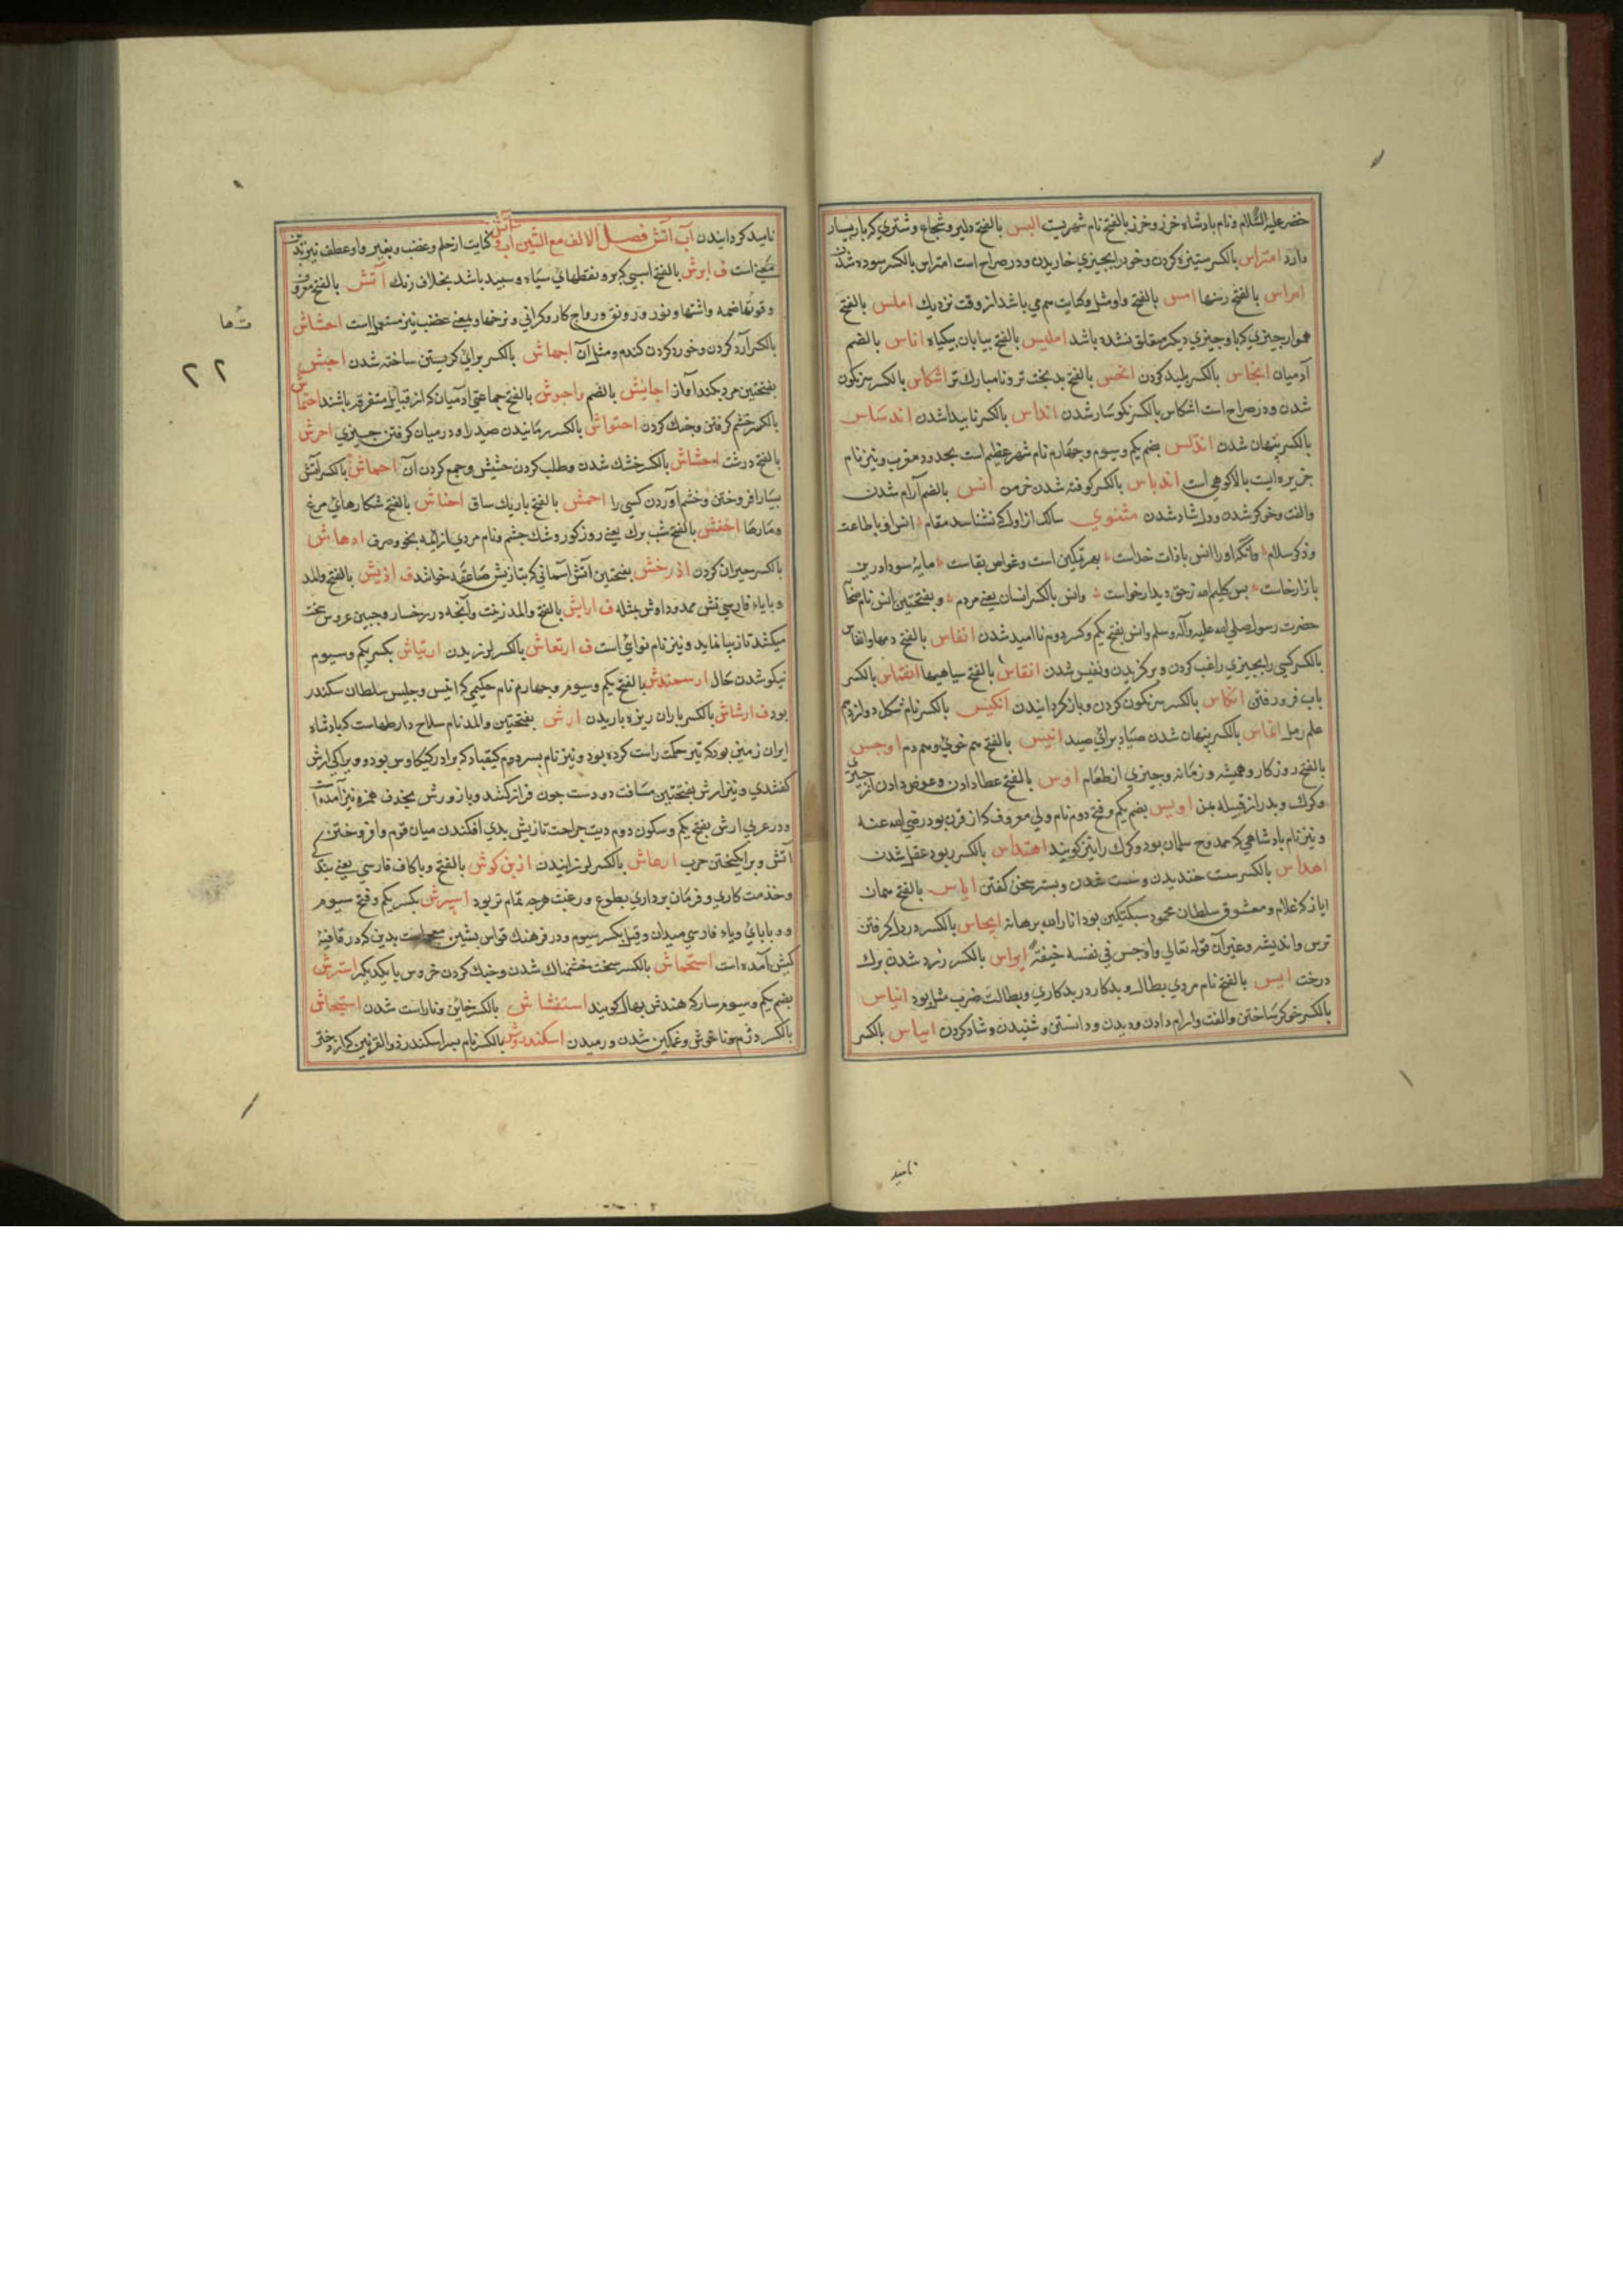 خضر علیه السلام و نام پادشاه خزر و خزر بالفتح نام شهریست الیس بالفتح دلیر و شجاع و شتری که بار بسیار
دارد امتراس بالکسر ستیزه کردن و خود را بچیزی خاریدن و در صراح است امتراس بالکسر سوده شدن
امراس بالفتح رسنها امس بالفتح و کنایت هم می باشد از وقت نزدیک املس بالفتح
هموار چیزی که باو چیزی دیگر متعلق نشده باشد املیس بالفتح بیابان بیگیاه اناس بالضم
آدمیان انجاس بالکسر پلید کردن انحس بالفتح بدبخت تر و نامبارک تر اشکاس بالکسر سرنگون
شدن و در صراح است اشکاس بالکسر نگوسار شدن انداس بالکسر ناپیدا شدن اندساس
بالکسر پنهان شدن اندلس بضم یکم و سیوم و چهارم نام شهر عظیم است بحدود مغرب و نیز نام
جزیره ایست بالا کوهی است اندیاس بالکسر کوفته شدن خرمن انس بالضم آرام شدن
والفت و خوگر شدن و دل شاد شدن مثنوی سالک از اول که نشناسد مقام انس او با طاعت
و ذکر سلام وانگه او را انس با ذات خداست بهر تمکین است و غواص بقاست مایه سودا درین
بازار خاست پس کلیم الله ز حق دیدار خواست وانس بالکسر انسان یعنی مردم و بفتحتین انس نام
حضرت رسول صلی الله علیه وآله وسلم وانس بفتح یکم وکسر دوم ناامید شدن انفاس بالفتح دمها وانفاس
بالکسر کسی را بچیزی راغب کردن و برگزیدن و نفیس شدن انقاس بالفتح سیاهیها انقماس بالکسر
باب فرو رفتن انکاس بالکسر سرنگون کردن و باز گردانیدن انکیس بالکسر نام شکل دوازدهم
علم رمل انغاس بالکسر پنهان شدن صیاد برای صید انیس بالفتح هم خوی و هم دم اوجس
بالفتح روزکار و همیشه و زمانه و چیزی از طعام اوس بالفتح عطا دادن و عوض دادن از چیزی
و کرک و پدر از قبیله یمن اویس بضم یکم و فتح دوم نام ولی معروف که از قرن بود رضی الله عنه
و نیز نام پادشاهی که ممدوح سلمان بود و کرک را نیز گویند اهتداس بالکسر ربود عقل شدن
اهداس بالکسر سست خندیدن و بستر سخن گفتن ایاس بالفتح همان
ایاز که غلام و معشوق سلطان محمود سبکتکین بود انار الله برهانه ایجاس بالکسر در دل گرفتن
ترس و اندیشه و غیر آن قوله تعالی واوجس فی نفسه خیفة ایراس بالکسر زرد شدن برک
درخت ایس بالفتح نام مردی بطال و بدکار در بدکاری و بطالت ضرب مثل بود ایناس
بالکسر خوگر ساختن و الفت و ارام دادن و دیدن و دانستن و شنیدن و شاد کردن ایاس بالکسر
نامید
نامید کردانیدن آب آتش فصل الالف مع الشین آب آتش کنایت از حلم و غضب و بغیر واو عطف نیز بدین
معنی است ف ابرش بالفتح اسپی که برو نقطهای سیاه و سپید باشد بخلاف رنک آتش بالفتح معروف
و قوت هاضمه و اشتها و نور و رونق و رواج کار و کرانی و نرخها و بمعنی غضب نیز مستعمل است احشاش
بالکسر آرد کردن و خورد کردن کندم و مثل آن اجهاش بالکسر برای کریستن ساخته شدن اجش
بفتحتین مرد بلند آواز اجایش بالضم واجوش بالفتح جماعتی آدمیان که از قبایل متفرقه باشند احتماش
بالکسر خشم کرفتن و جنک کردن احتواش بالکسر رمانیدن صید را و در میان کرفتن چیزی احرش
بالفتح درشت احشاش بالکسر خشک شدن و طلب کردن حشیش و جمع کردن آن احماش بالکسر آتش
بسیار افروختن و خشم آوردن کسی را احمش بالفتح باریک ساق احناش بالفتح شکارهای مرغ
و مارها اخفش بالفتح شب پرک یعنی روز کور و شک چشم و نام مردی از ائمه نحو و صرف ادهاش
بالکسر حیران کردن اذرخش بفتحتین آتش آسمانی که بتازیش صاعقه خوانند ف اذیش بالفتح والمد
و بایاء فارسی تش ممدود اوش مثله ف ارایش بالفتح والمد زینت و آنچه در رخسار و جبین عروس سخت
میکشد تا زیبا نماید و نیز نام نوائی است ف ارتعاش بالکسر لرزیدن ارتیاش بکسر یکم و سیوم
نیکو شدن حال ارسحتدش بالفتح یکم و سیوم و چهارم نام حکیمی که انیس و جلیس سلطان سکندر
بود ف ارشاش بالکسر باران ریزه باریدن ارش بفتحتین والمد نام سلاح دار طهماسب که پادشاه
ایران زمین بود که تیر حکمت راست کرده بود و نیز نام پسر دوم کیقباد که برادر کیکاوس بود و ویرا کی ارش
کفتندی و نیز ارش بفتحتین مسافت دو دست چون فراز کنند و باز و رش بحذف همزه نیز آمده است
و در عربی ارش بفتح یکم و سکون دوم دیت جراحت تازیش بدی افکندن میان قوم و افروختن
آتش و برانکیختن حرب ارعاش بالکسر لرزانیدن ازین کوش بالفتح و با کاف فارسی یعنی بندکی
و خدمت کاری و فرمان برداری بطوع و رغبت هرچه تمام تر بود اسپرش بکسر یکم و فتح سیوم
و با بای و یاء فارسی میدان و قیل بکسر سیوم و در فرهنک قواس بشین معجمه است بدین که در قافیه
کیش آمده است استحماش بالکسر سخت خشمناک شدن و جنک کردن خروس با یکدیکر استرش
بضم یکم و سیوم سار که هندش بهال کویند استفشاش بالکسر خاین و ناراست شدن استیحاش
بالکسر دژم و ناخوش و غمکین شدن و رمیدن اسکندروش بالکسر نام پسر اسکندر ذوالقرنین که از دختر
۲۲